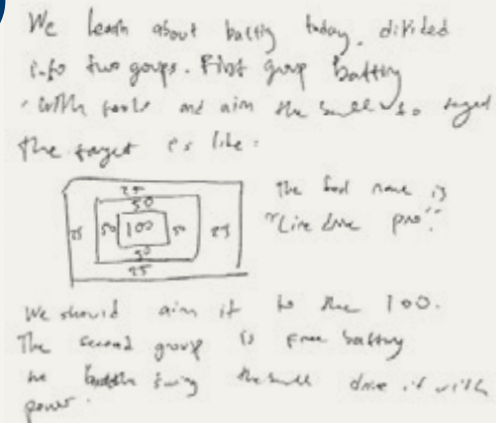 We learn about battig today. divided
info two goups. First goup battiy
with tools and aim the ball to taged
the target is like:
25
50
25 50 100 50 25
50
25
The tool name is
"Line drive pro".
We should aim it to the 100.
The second group is Free battiy
we swing the ball drive it with
power.